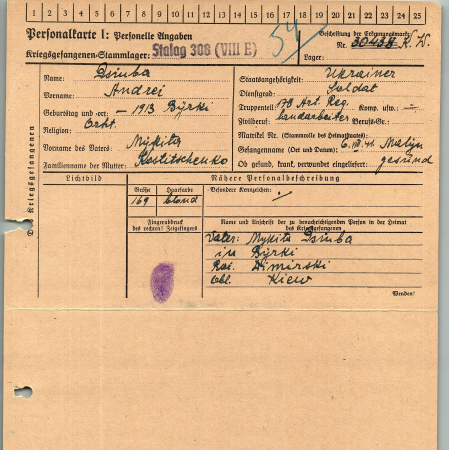 1 2 3 4 5 6 7 8 9 10 11 12 13 14 15 16 17 18 19 20 21 22 23 24 25
Personalkarte I: Personelle Angaben
Beschriftung der Erkennungsmarke
Nr. 30438 K. W.
54
Kriegsgefangenen-Stammlager: Stalag 308 (VIII E)
Lager:
Des Kriegsgefangenen
Name: Dsiuba
Vorname: Andrei
Geburtstag und -ort: - 1913 Byrki
Religion: Orth.
Vorname des Vaters: Mykita
Familienname der Mutter: Kostitschenko
Staatsangehörigkeit: Ukrainer
Dienstgrad: Soldat
Truppenteil: Art. Reg. Komp. usw.:
Zivilberuf: Landarbeiter Berufs-Gr.:
Matrikel Nr. (Stammrolle des Heimatstaates):
Gefangennahme (Ort und Datum): 6. VIII. 41. Malyn
Ob gesund, krank, verwundet eingeliefert: gesund
Lichtbild
Nähere Personalbeschreibung
Größe
Haarfarbe
Besondere Kennzeichen:
169
blond
Fingerabdruck
des rechten! Zeigefingers
Name und Anschrift der zu benachrichtigenden Person in der Heimat
des Kriegsgefangenen
Vater: Mykita Dsiuba
in Byrki
Rai. Dimirski
Obl. Kiew
Wenden!